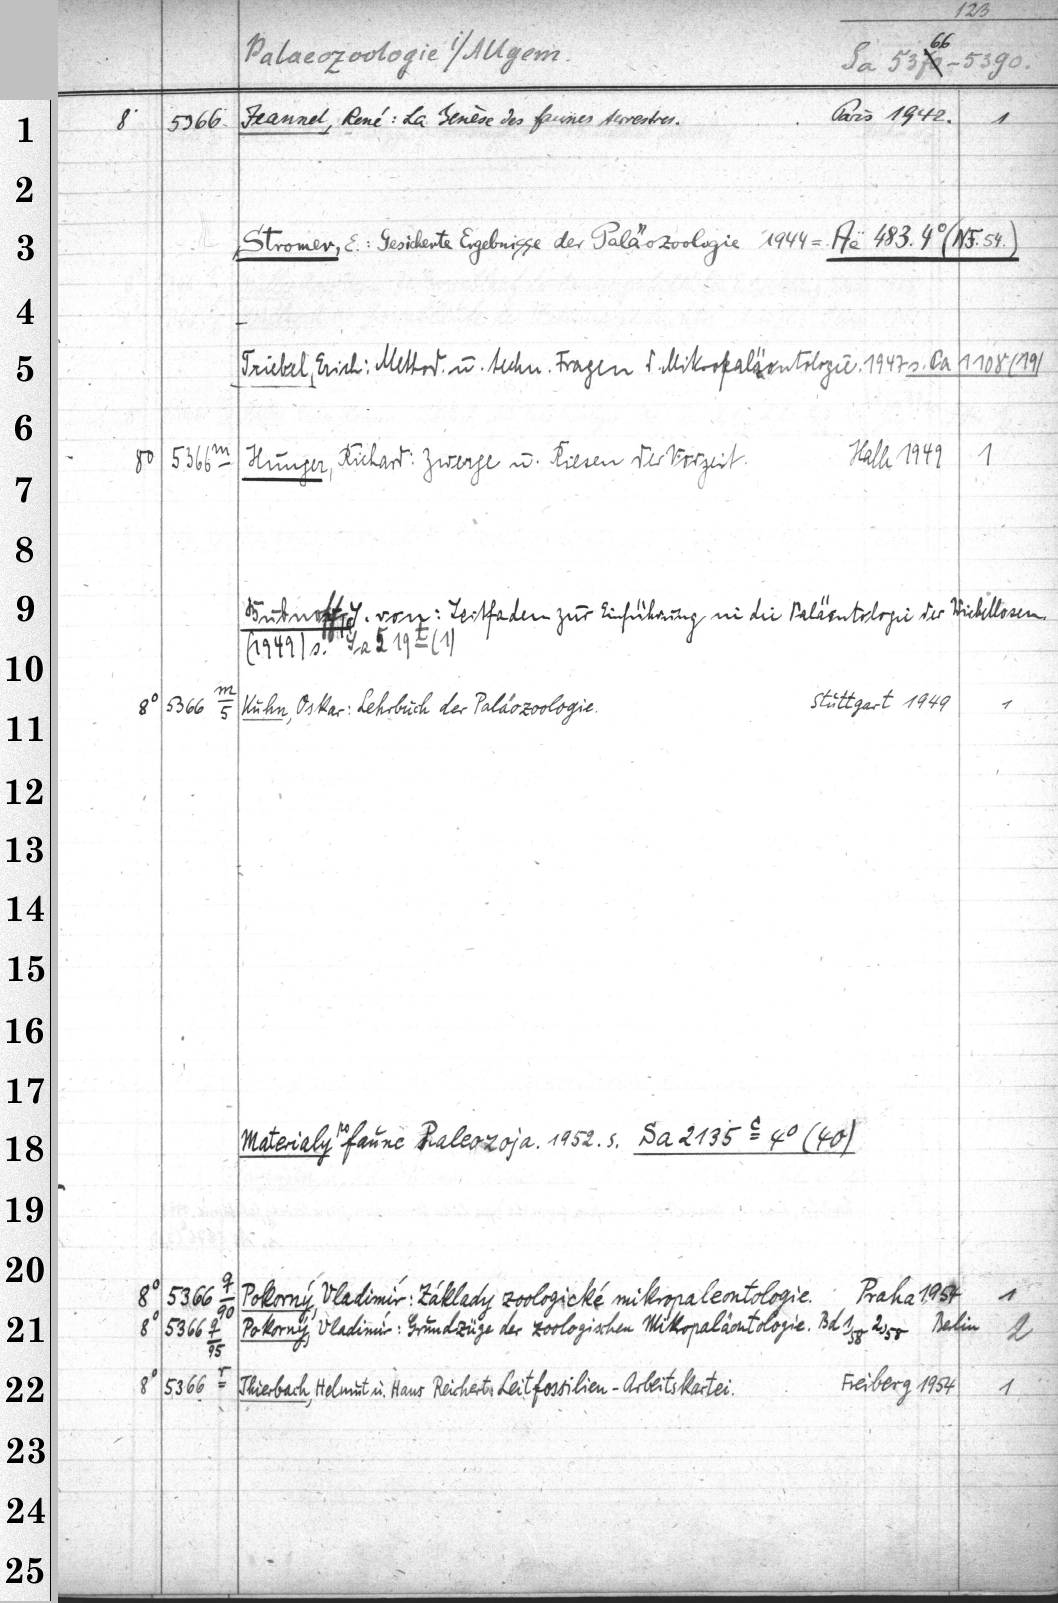 123
Palaeozoologie i/Allgem. Sa 5370 66 - 5390.
1 8° 5366. Jeannel, René: La Genèse des faunes terrestres. Paris 1942. 1
2
3 Stromer, E.: Gesicherte Ergebnisse der Paläozoologie 1944 = Aë 483. 4° (NF. 54.)
4
5 Triebel, Erich: Method. u. techn. Fragen d. Mikropaläontologie. 1947 s. Ca 1108 (19)
6
8° 5366 m Hunger, Richard: Zwerge u. Riesen der Vorzeit. Halle 1949 1
7
8
9 Bubnoff, S. von: Leitfaden zur Einführung in die Paläontologie der Wirbellosen.
(1949) s. Sa 519 t (1)
10
8° 5366 m/5 Kuhn, Oskar: Lehrbuch der Paläozoologie. Stuttgart 1949 1
11
12
13
14
15
16
17
18 Materialy po faune Paleozoja. 1952. s. Sa 2135 c 4° (40)
19
20
8° 5366 q/90 Pokorný, Vladimír: Základy zoologické mikropaleontologie. Praha 1954 1
21 8° 5366 q/95 Pokorný, Vladimír: Grundzüge der zoologischen Mikropaläontologie. Bd 1,58 2,58 Berlin 2
22 8° 5366 r Thierbach, Helmut u. Hans Reichert: Leitfossilien-Arbeitskartei. Freiberg 1954 1
23
24
25